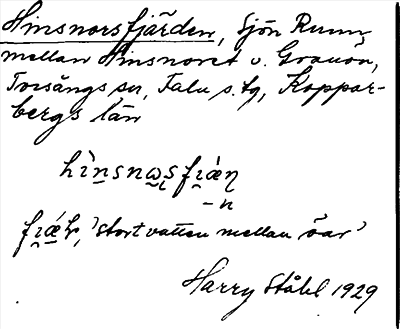 Hinsnorsfjärden, Sjön Runn
mellan Hinsnoret o. Grauön,
Torsångs sn, Falu s. tg, Koppar-
bergs län
hìnsnꞷsfıáɳ
- n
fıáɽ, 'stort vatten mellan öar'
Harry Ståhl 1929